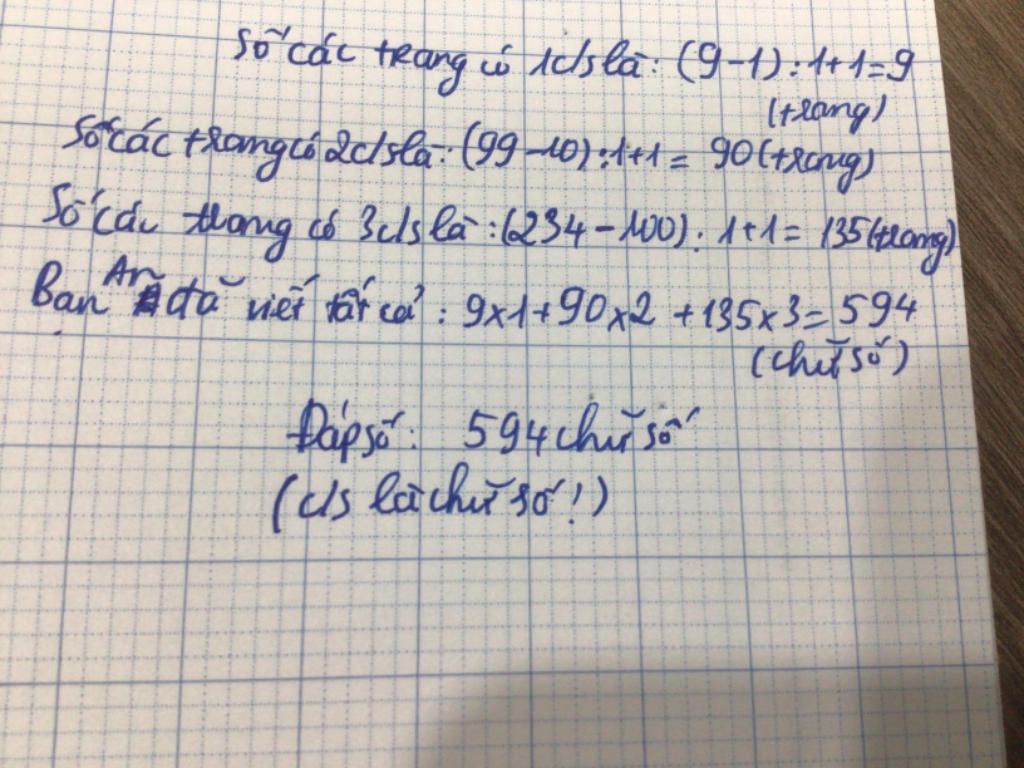 Số các trang có 1c/s là: (9-1):1+1=9
(trang)
Số các trang có 2c/s là: (99-10):1+1= 90(trang)
Số các trang có 3c/s là :(234-100): 1+1= 135(trang)
Bạn An đã viết tất cả : 9x1+90x2 +135x3=594
(chữ số)
Đáp số: 594 chữ số
(c/s là chữ số!)